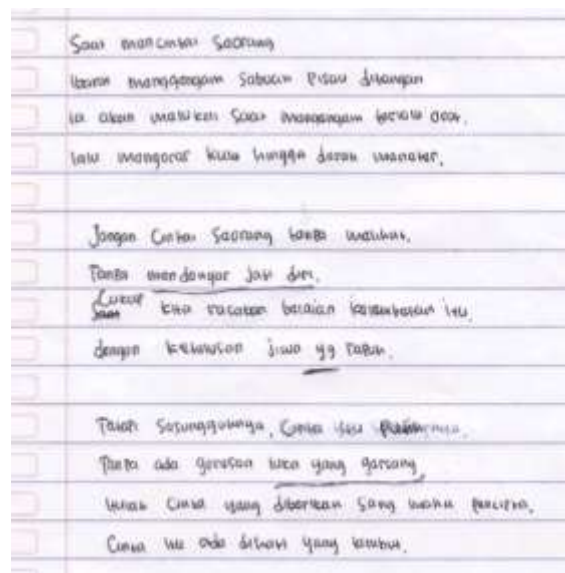 Saat mencintai Seorang
ibarat menggenggam Sebuah Pisau ditangan
ia akan melukai Saat menggengam terlalu erat.
lalu mengoros kuku hingga darah menetes.
Jangan Cintai Seorang tanpa melihat.
Tanpa mendengar jati diri.
Cukup kita rasakan belaian kelembutan itu.
dengan ketulusan jiwa yg rapuh.
Sesungguhnya, Cinta itu
Tanpa ada goresan luka yang garsang
Cinta yang diberikan Sang maha pencipta.
Cinta itu ada dihati yang lembut.